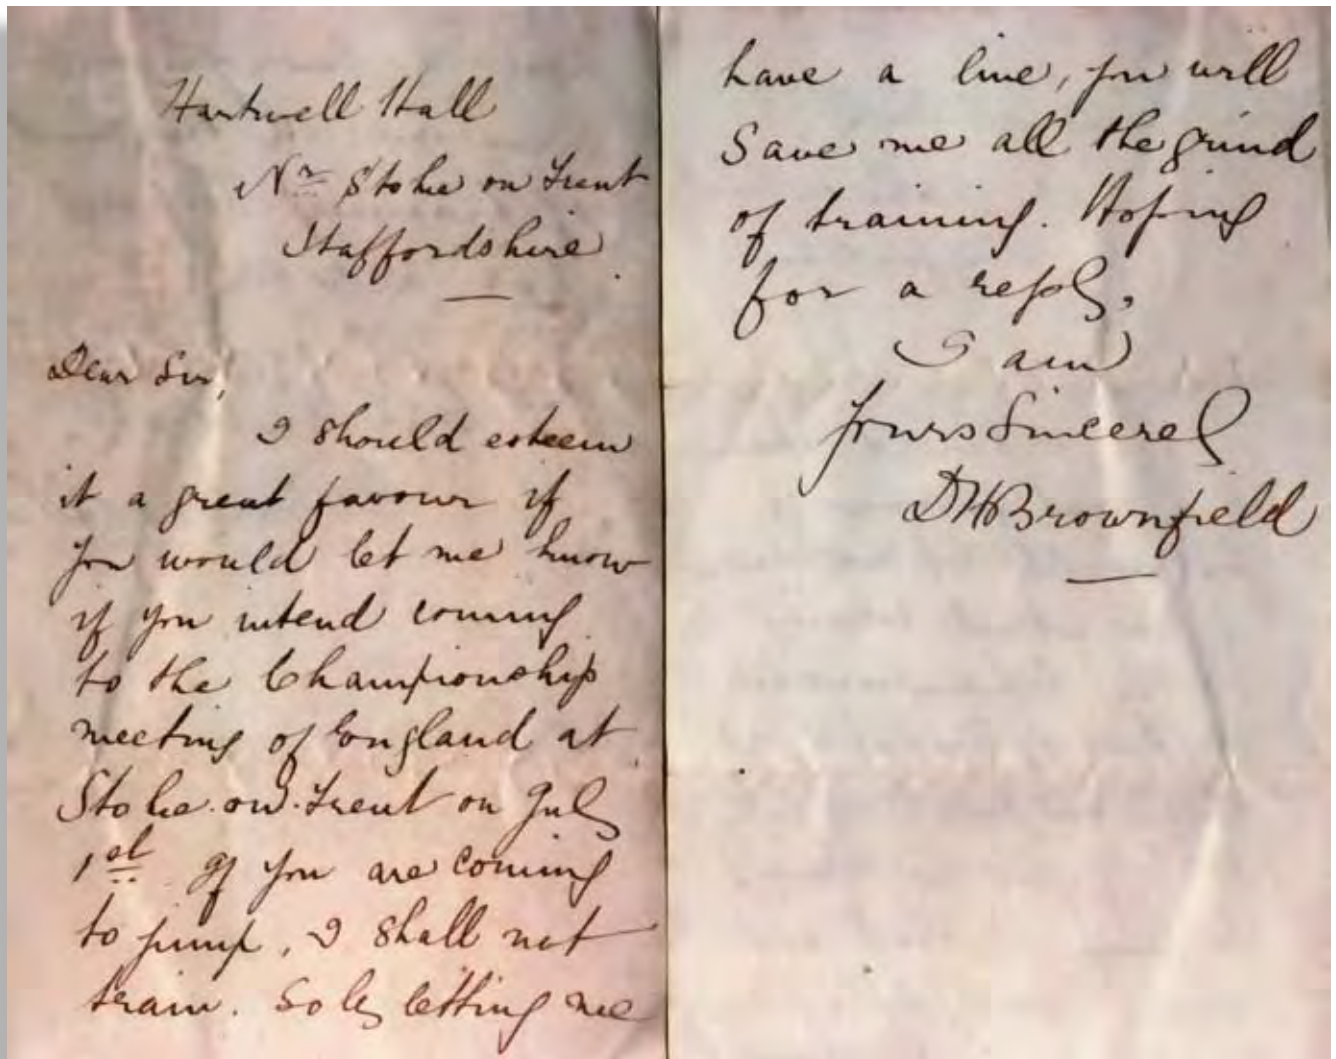 Hartwell Hall
Nr Stoke on Trent
Staffordshire
Dear Sir,
I should esteem
it a great favour if
you would let me know
if you intend coming
to the Championship
meeting of England at
Stoke.on.Trent on July
1st If you are coming
to jump, I shall not
train. So by letting me
have a line, you will
save me all the grind
of training. Hoping
for a reply,
I am
Yours Sincerely
DHBrownfield